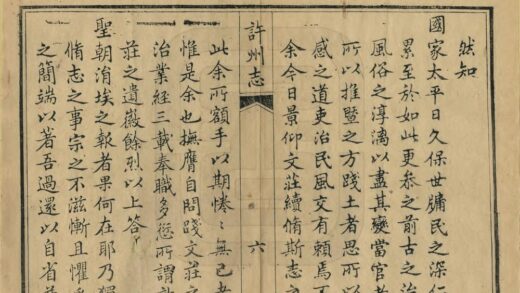 然知
國家太平日久保世牖民之深仁
累至於如此更叅之前古之治
風俗之淳漓以盡其變當官者
所以推暨之方踐土者思所以
感之道吏治民風交有賴焉
余今日景仰文莊續脩斯志之
許州志
六
此余所額手以期惓〻無已者
惟是余也撫膺自問踐文莊之
治業經三載奉職多愆所謂
莊之遺徽餘烈以上答
聖朝涓埃之報者果何在耶乃
脩志之事宗之不滋慚且懼
之簡端以著吾過還以自省